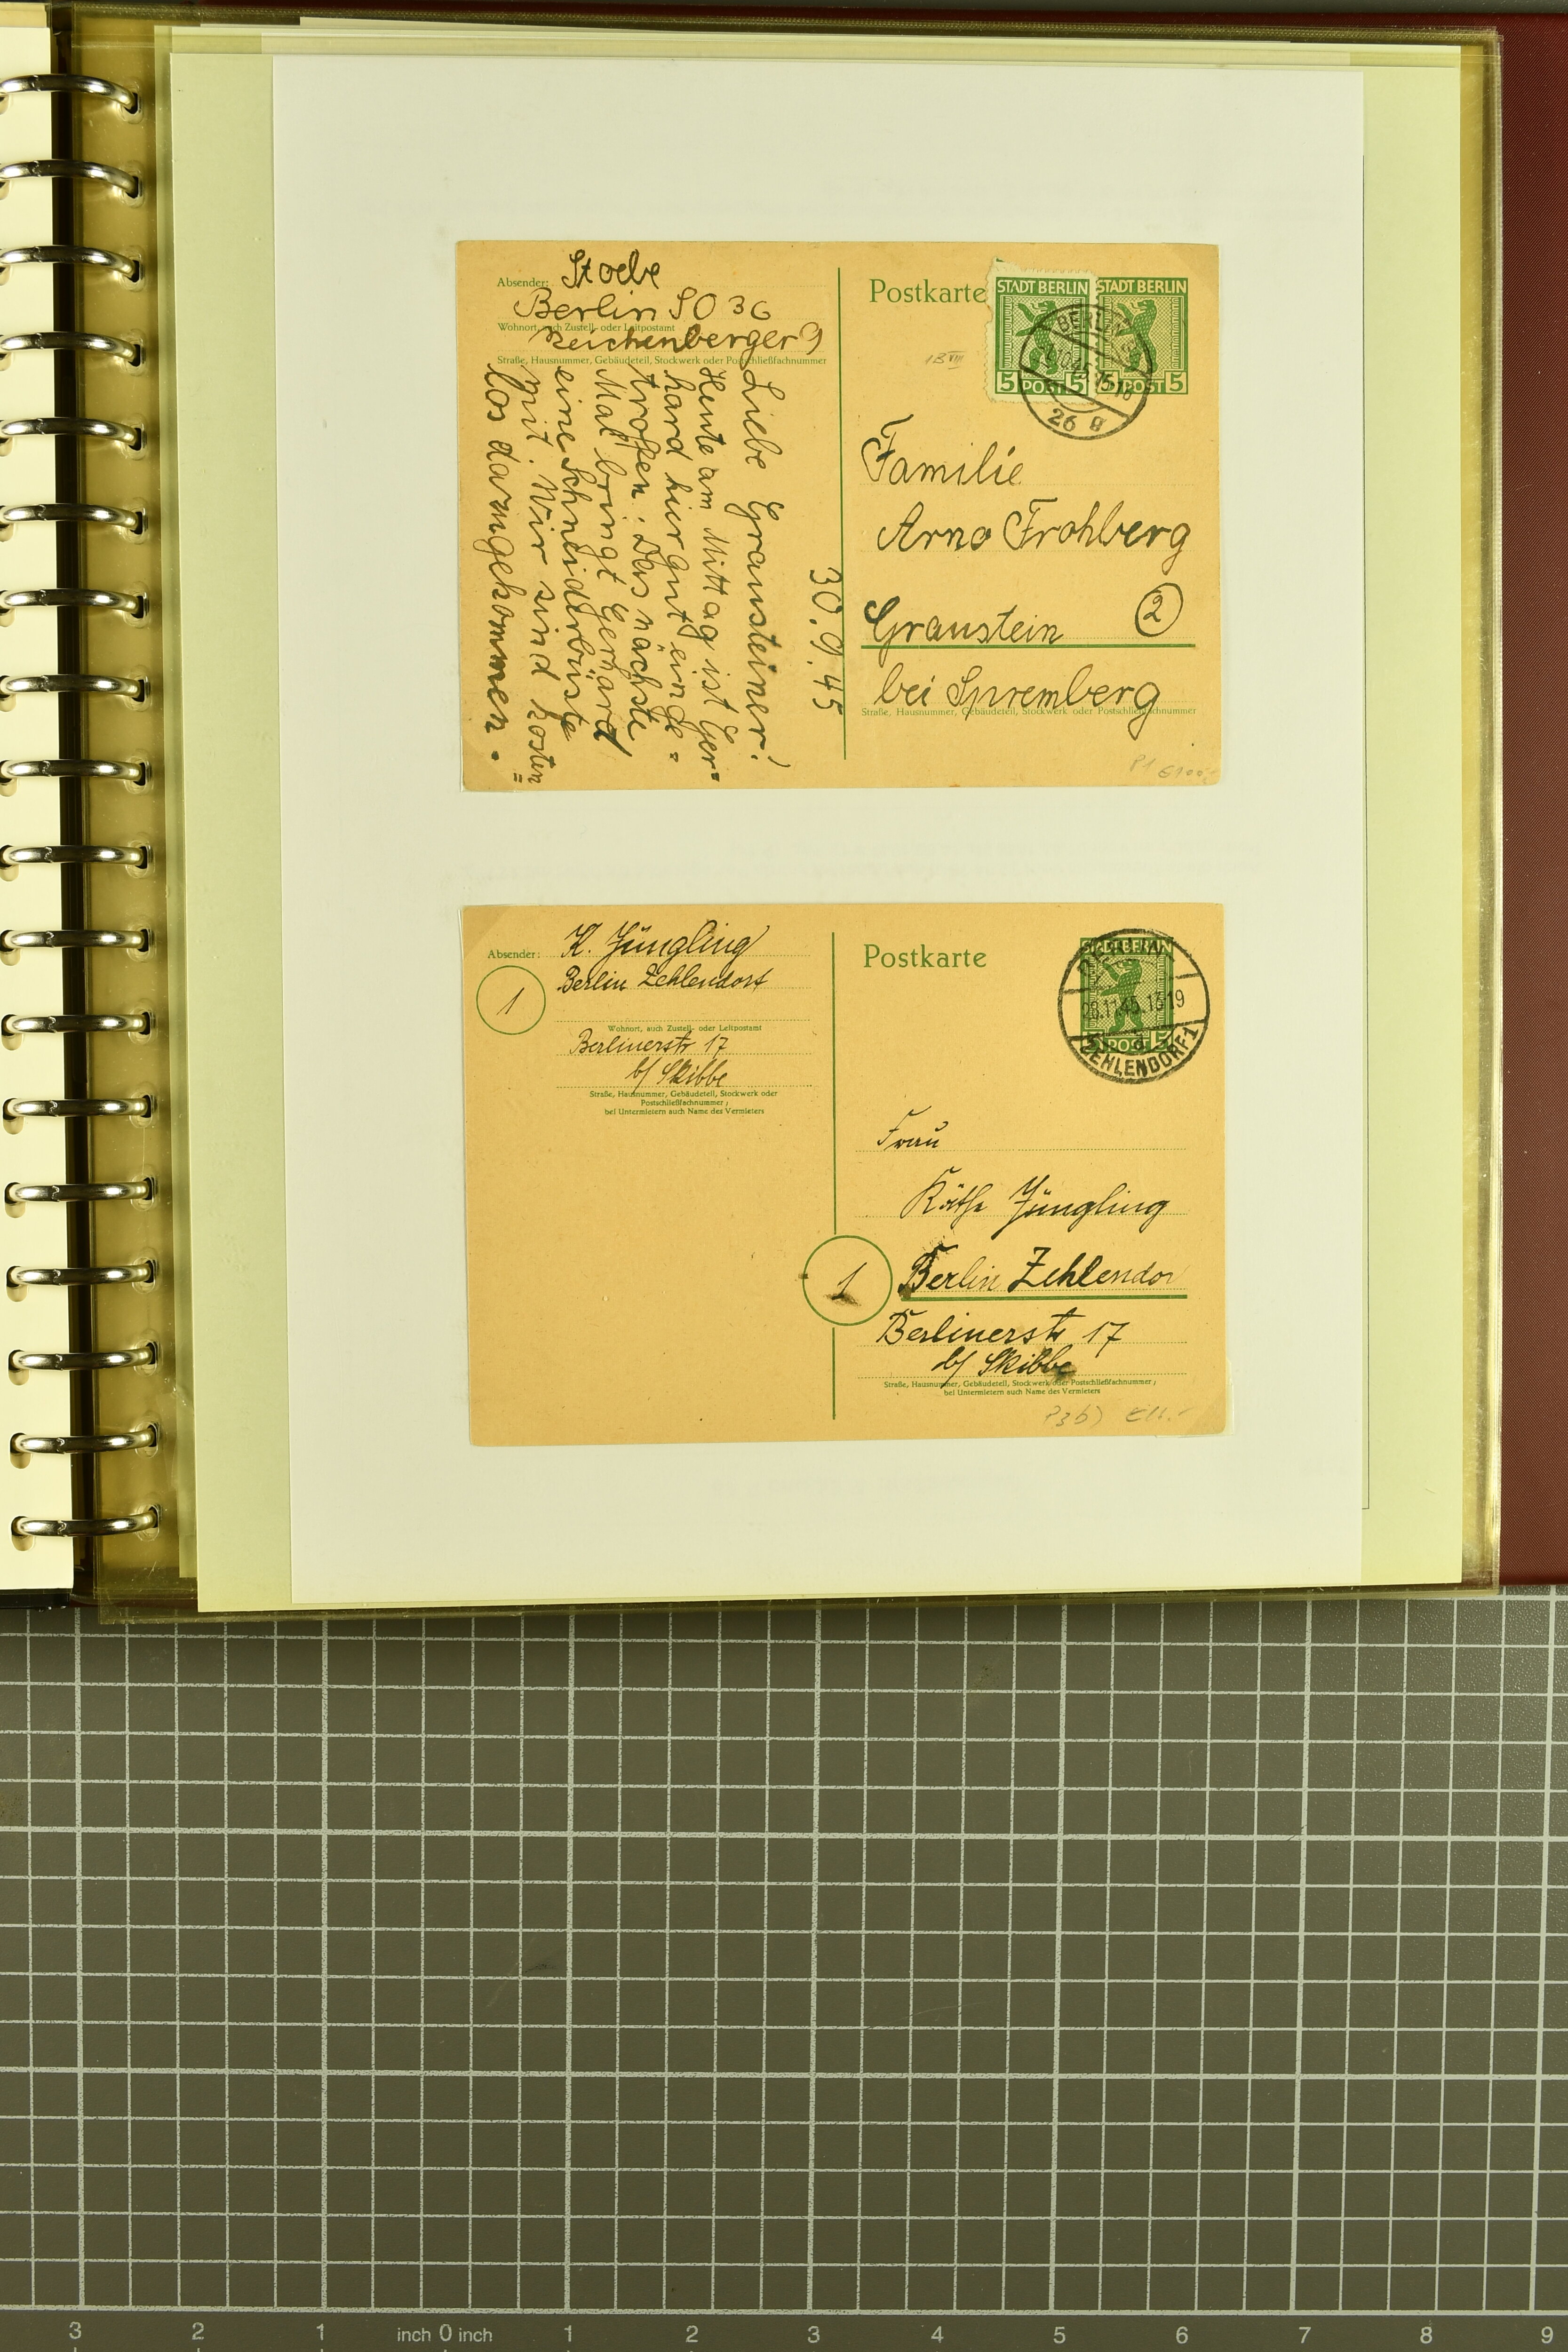 Absender: Stoebe
Berlin SO 36
Wohnort, auch Zustell- oder Leitpostamt
Reichenberger 9
Straße, Hausnummer, Gebäudeteil, Stockwerk oder Postschließfachnummer
30.9.45
Liebe Grausteiner!
Heute am Mittag ist Ger=
hard hier gut einge=
troffen. Das nächste
Mal bringt Gerhard
eine Schneiderbüste
mit. Wir sind kosten
=
los darangekommen.
Postkarte
STADT BERLIN
5 POST 5
STADT BERLIN
POST 5
BERLIN
26
1B VIII
Familie
Arno Frohberg
Graustein 2
bei Spremberg
Straße, Hausnummer, Gebäudeteil, Stockwerk oder Postschließfachnummer
P1
Absender: K. Jüngling
1
Berlin Zehlendorf
Wohnort, auch Zustell- oder Leitpostamt
Berlinerstr 17
b/ Skibbe
Straße, Hausnummer, Gebäudeteil, Stockwerk oder
Postschließfachnummer;
bei Untermietern auch Name des Vermieters
Postkarte
STADT BERLIN
5 POST 5
BERLIN
28.11.45.18-19
ZEHLENDORF 1
Frau
Käthe Jüngling
1 Berlin Zehlendor
Berlinerstr 17
b/ Skibbe
Straße, Hausnummer, Gebäudeteil, Stockwerk oder Postschließfachnummer;
bei Untermietern auch Name des Vermieters
P3b)
3 2 1 inch 0 inch 1 2 3 4 5 6 7 8 9